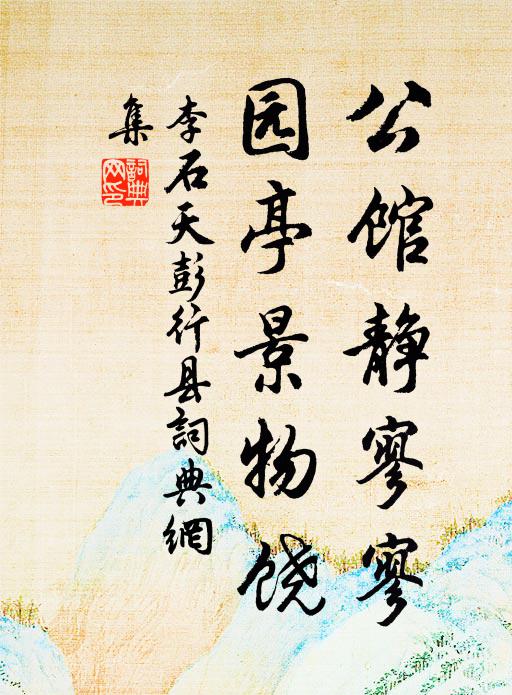 公馆静寥寥
园亭景物饶
李石天彭行县詞典網
集
詞典网印